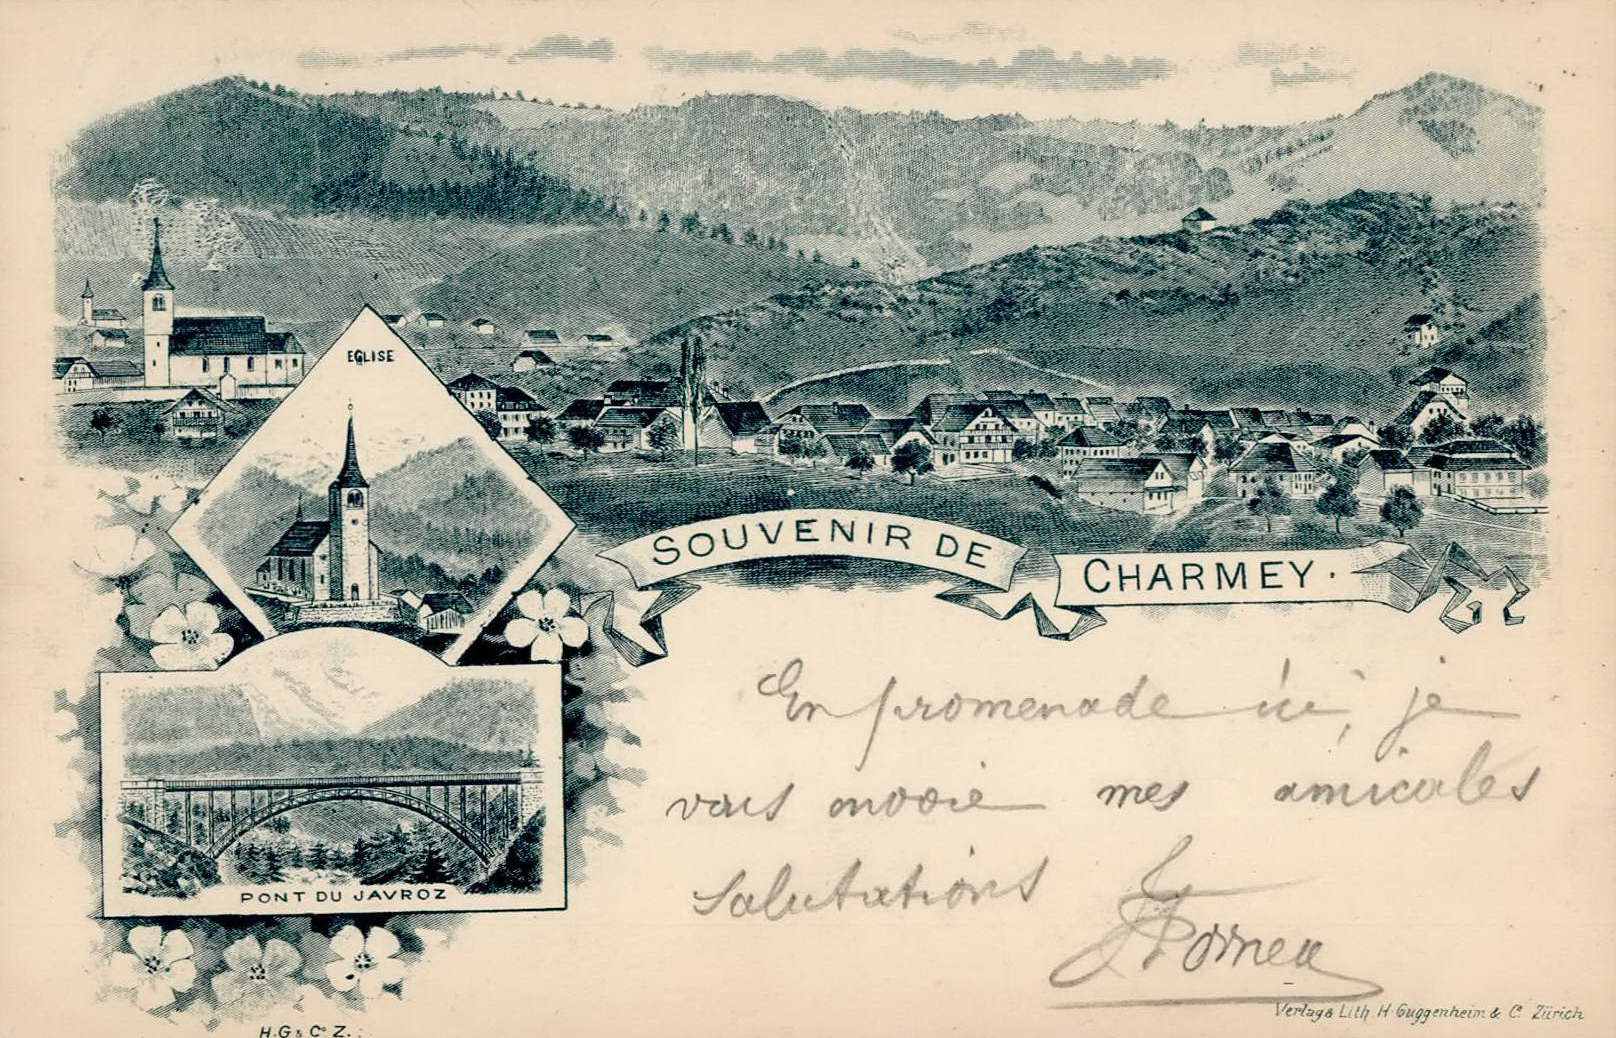 EGLISE
SOUVENIR DE CHARMEY.
En promenade ici, je
vous envoie mes amicales
salutations
PONT DU JAVROZ
H.G & Cº Z.
Verlag & Lith. H Guggenheim & Cº Zürich